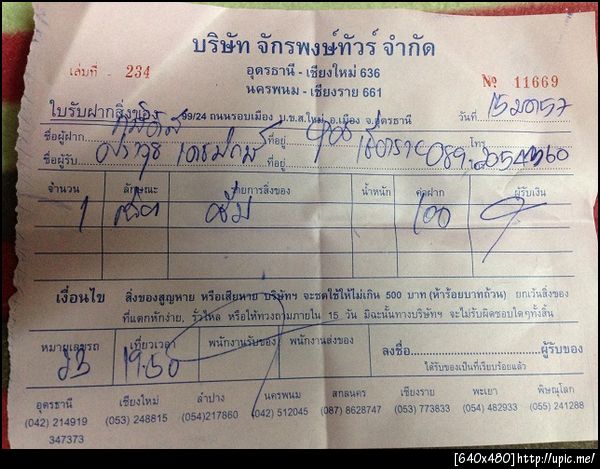 บริษัท จักรพงษ์ทัวร์ จำกัด
เล่มที่ - 234
อุดรธานี - เชียงใหม่ 636
นครพนม - เชียงราย 661
No 11669
ใบรับฝากสิ่งของ 99/24 ถนนรอบเมือง บ.ข.ส.ใหม่ อ.เมือง จ.อุดรธานี วันที่
ชื่อผู้ฝาก ที่อยู่ โทร
ชื่อผู้รับ ที่อยู่
จำนวน ลักษณะ รายการสิ่งของ น้ำหนัก ค่าฝาก ผู้รับเงิน
1 100
เงื่อนไข สิ่งของสูญหาย หรือเสียหาย บริษัทฯ จะชดใช้ให้ไม่เกิน 500 บาท (ห้าร้อยบาทถ้วน) ยกเว้นสิ่งของ
ที่แตกหักง่าย, รั่วไหล หรือให้ทวงถามภายใน 15 วัน มิฉะนั้นทางบริษัทฯ จะไม่รับผิดชอบใดๆทั้งสิ้น
หมายเลขรถ เที่ยวเวลา พนักงานรับของ พนักงานส่งของ ลงชื่อ ผู้รับของ
19.50
ได้รับของเป็นที่เรียบร้อยแล้ว
อุดรธานี เชียงใหม่ ลำปาง นครพนม สกลนคร เชียงราย พะเยา พิษณุโลก
(042) 214919 (053) 248815 (054)217860 (042) 512045 (087) 8628747 (053) 773833 (054) 482933 (055) 241288
347373
[640x480]http://upic.me/